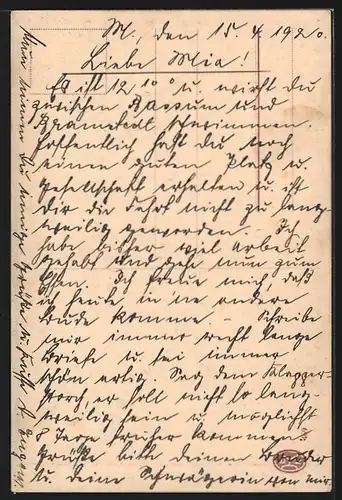 M., den 15.4.1920.
Liebe Mia!
Es ist 12 10° u. wirst du
zwischen Bassum und
Bramstedt schwimmen.
Hoffentlich hast du noch
einen guten Platz u.
Gesellschaft erhalten u. ist
dir die Fahrt nicht zu lang-
weilig geworden. Ich
habe bisher viel Arbeit
gehabt und gehe nun zum
Essen. Ich freue mich, daß
ich heute in ne andere
Bude komme. Schreibe
mir immer recht lange
Briefe u. sei immer
schön artig. Sag dem Klapper-
storch, er soll nicht so lang-
weilig sein u. möglichst
8 Tage früher kommen.
Grüße bitte deinen Bruder
u. deine Schwägerin von mir.
Nun nimm du innige Grüße u. Küsse